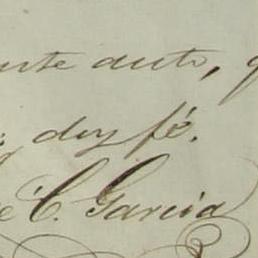 este auto, q
doy fé.
é C. Garcia